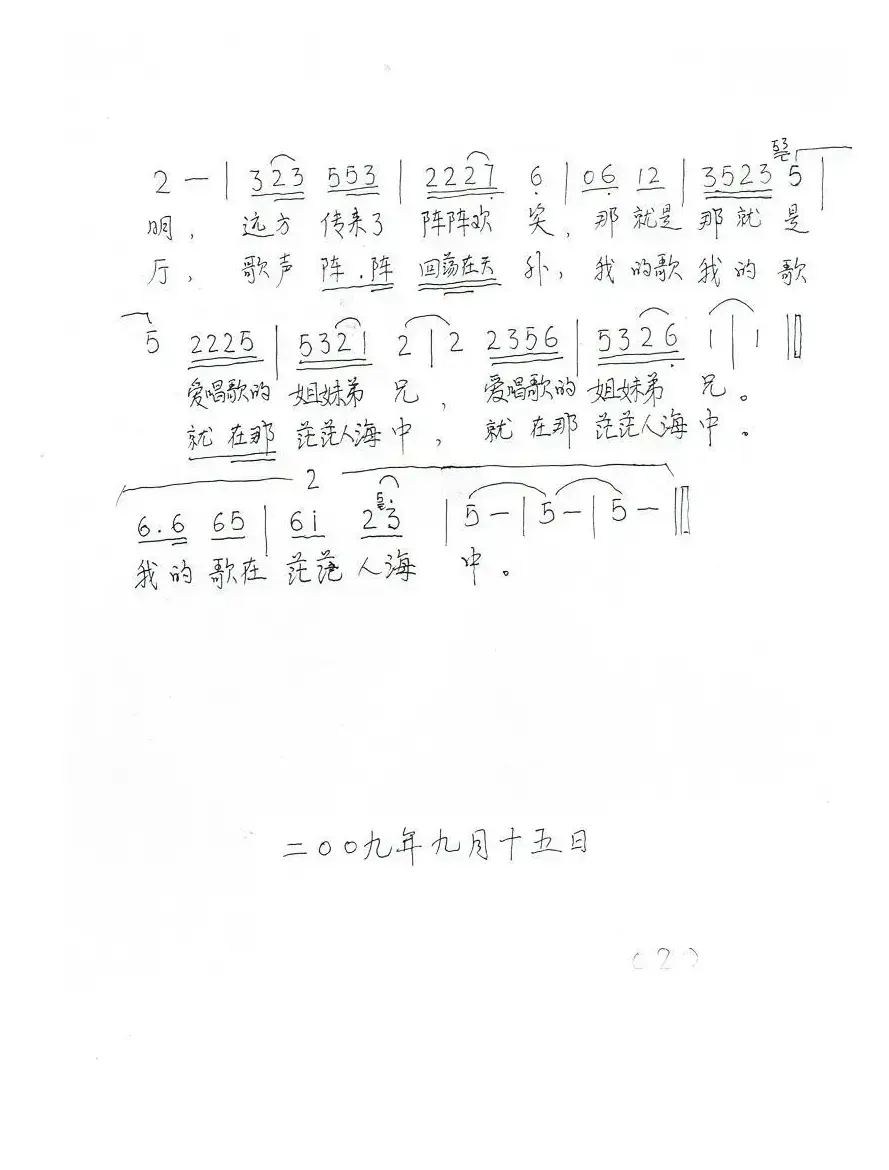 2 — | 323 553 | 2227 6 | 06 12 | 3523 ⁵³5 |
明， 远方 传来了 阵阵欢 笑，那 就是 那 就 是
厅， 歌声 阵.阵 回荡在天 外，我 的歌 我 的 歌
5 2225 | 5321 2 | 2 2356 | 5326 1 | 1 ‖
爱唱歌的 姐妹弟 兄， 爱唱歌的 姐妹弟 兄。
就 在那 茫茫人海 中， 就 在那 茫茫人海 中。
2
6.6 65 | 6i 23 | 5 — | 5 — | 5 — ‖
我 的 歌在 茫茫 人海 中。
二〇〇九年九月十五日
(2)